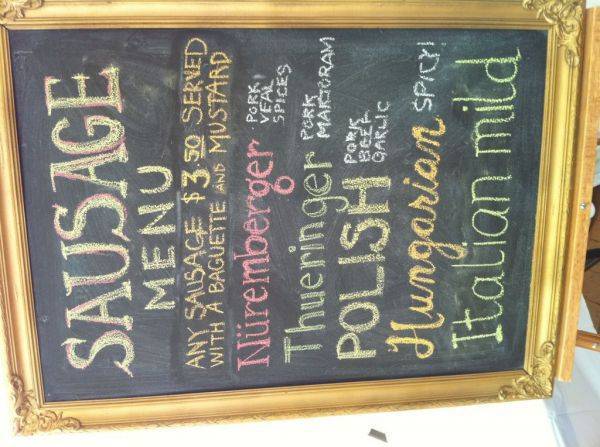 SAUSAGE
MENU
ANY SAUSAGE $3.50 SERVED
WITH A BAGUETTE AND MUSTARD
Nüremberger
PORK,
VEAL
SPICES
Thueringer
PORK
MARJORAM
POLISH
PORK
BEEF
GARLIC
Hungarian SPICY!
Italian mild